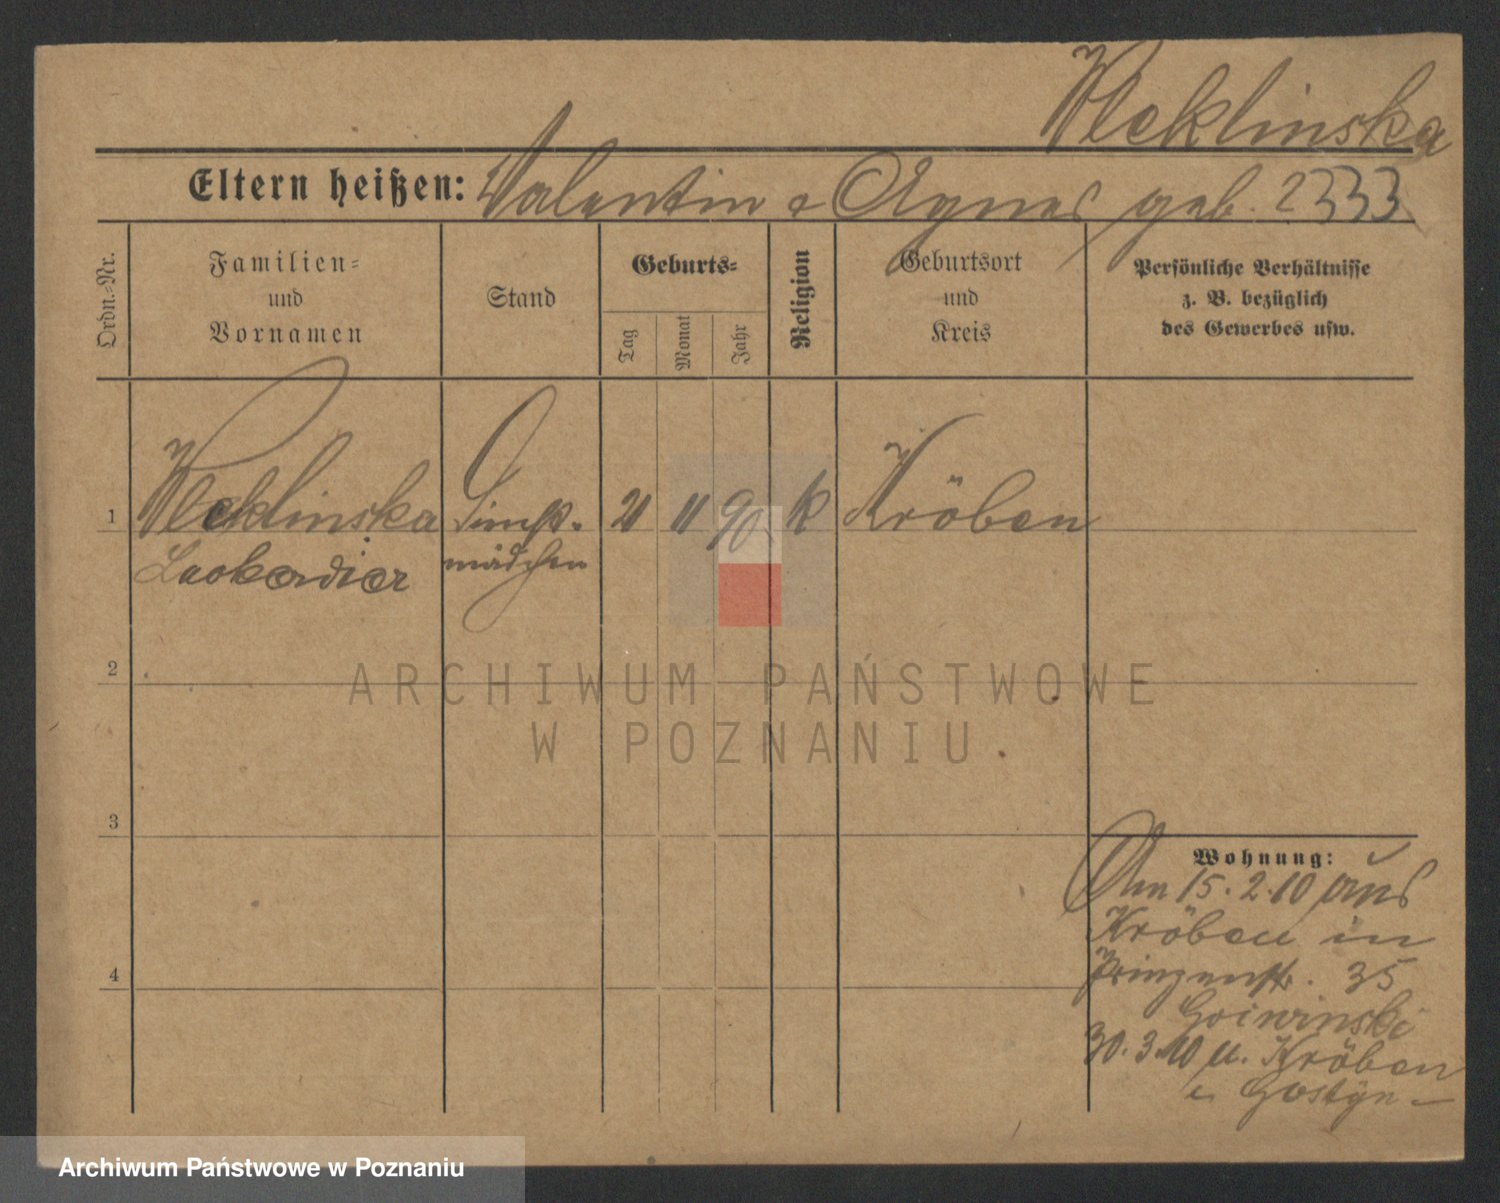 Weklinska
Eltern heißen: Valentin & Agnes geb. 2333
Ordn.-Nr.
Familien-
und
Vornamen
Stand
Geburts-
Tag
Monat
Jahr
Religion
Geburtsort
und
Kreis
Persönliche Verhältnisse
z. B. bezüglich
des Gewerbes usw.
1 Weklinska 21 11 90 k Kröben
mädchen
2
3
4
Wohnung:
Am 15.2.10 aus
Kröben in
Prinzenstr. 35
30.3.10 n. Kröben
Gostyn
ARCHIWUM PAŃSTWOWE
W POZNANIU
Archiwum Państwowe w Poznaniu